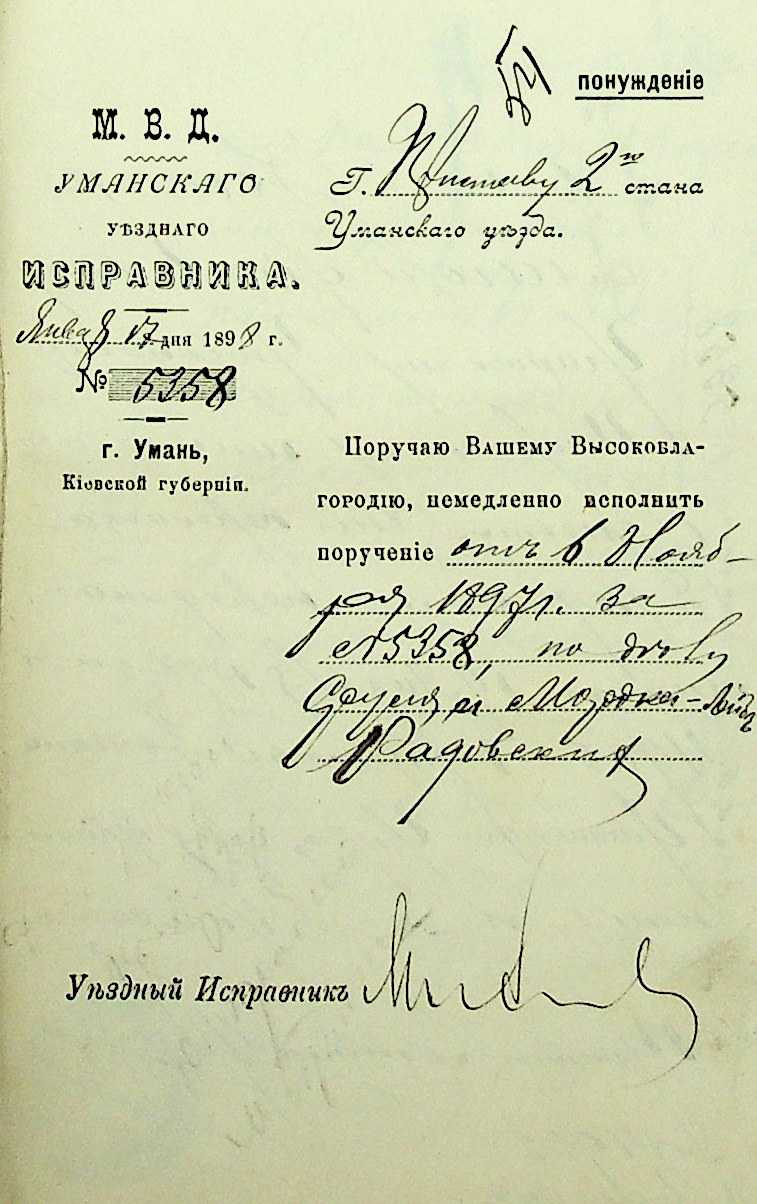 понужденіе
М. В. Д.
УМАНСКАГО
УѢЗДНАГО
ИСПРАВНИКА.
Января 17 дня 1898 г.
№ 5358
г. Умань,
Кіевской губерніи.
Г. Приставу 2го стана
Уманскаго уѣзда.
Поручаю Вашему Высокобла-
городію, немедленно исполнить
порученіе отъ 6 Нояб-
ря 1897 г. за
№5358, по дѣлу
и Мордка-
Радовских
Уѣздный Исправникъ